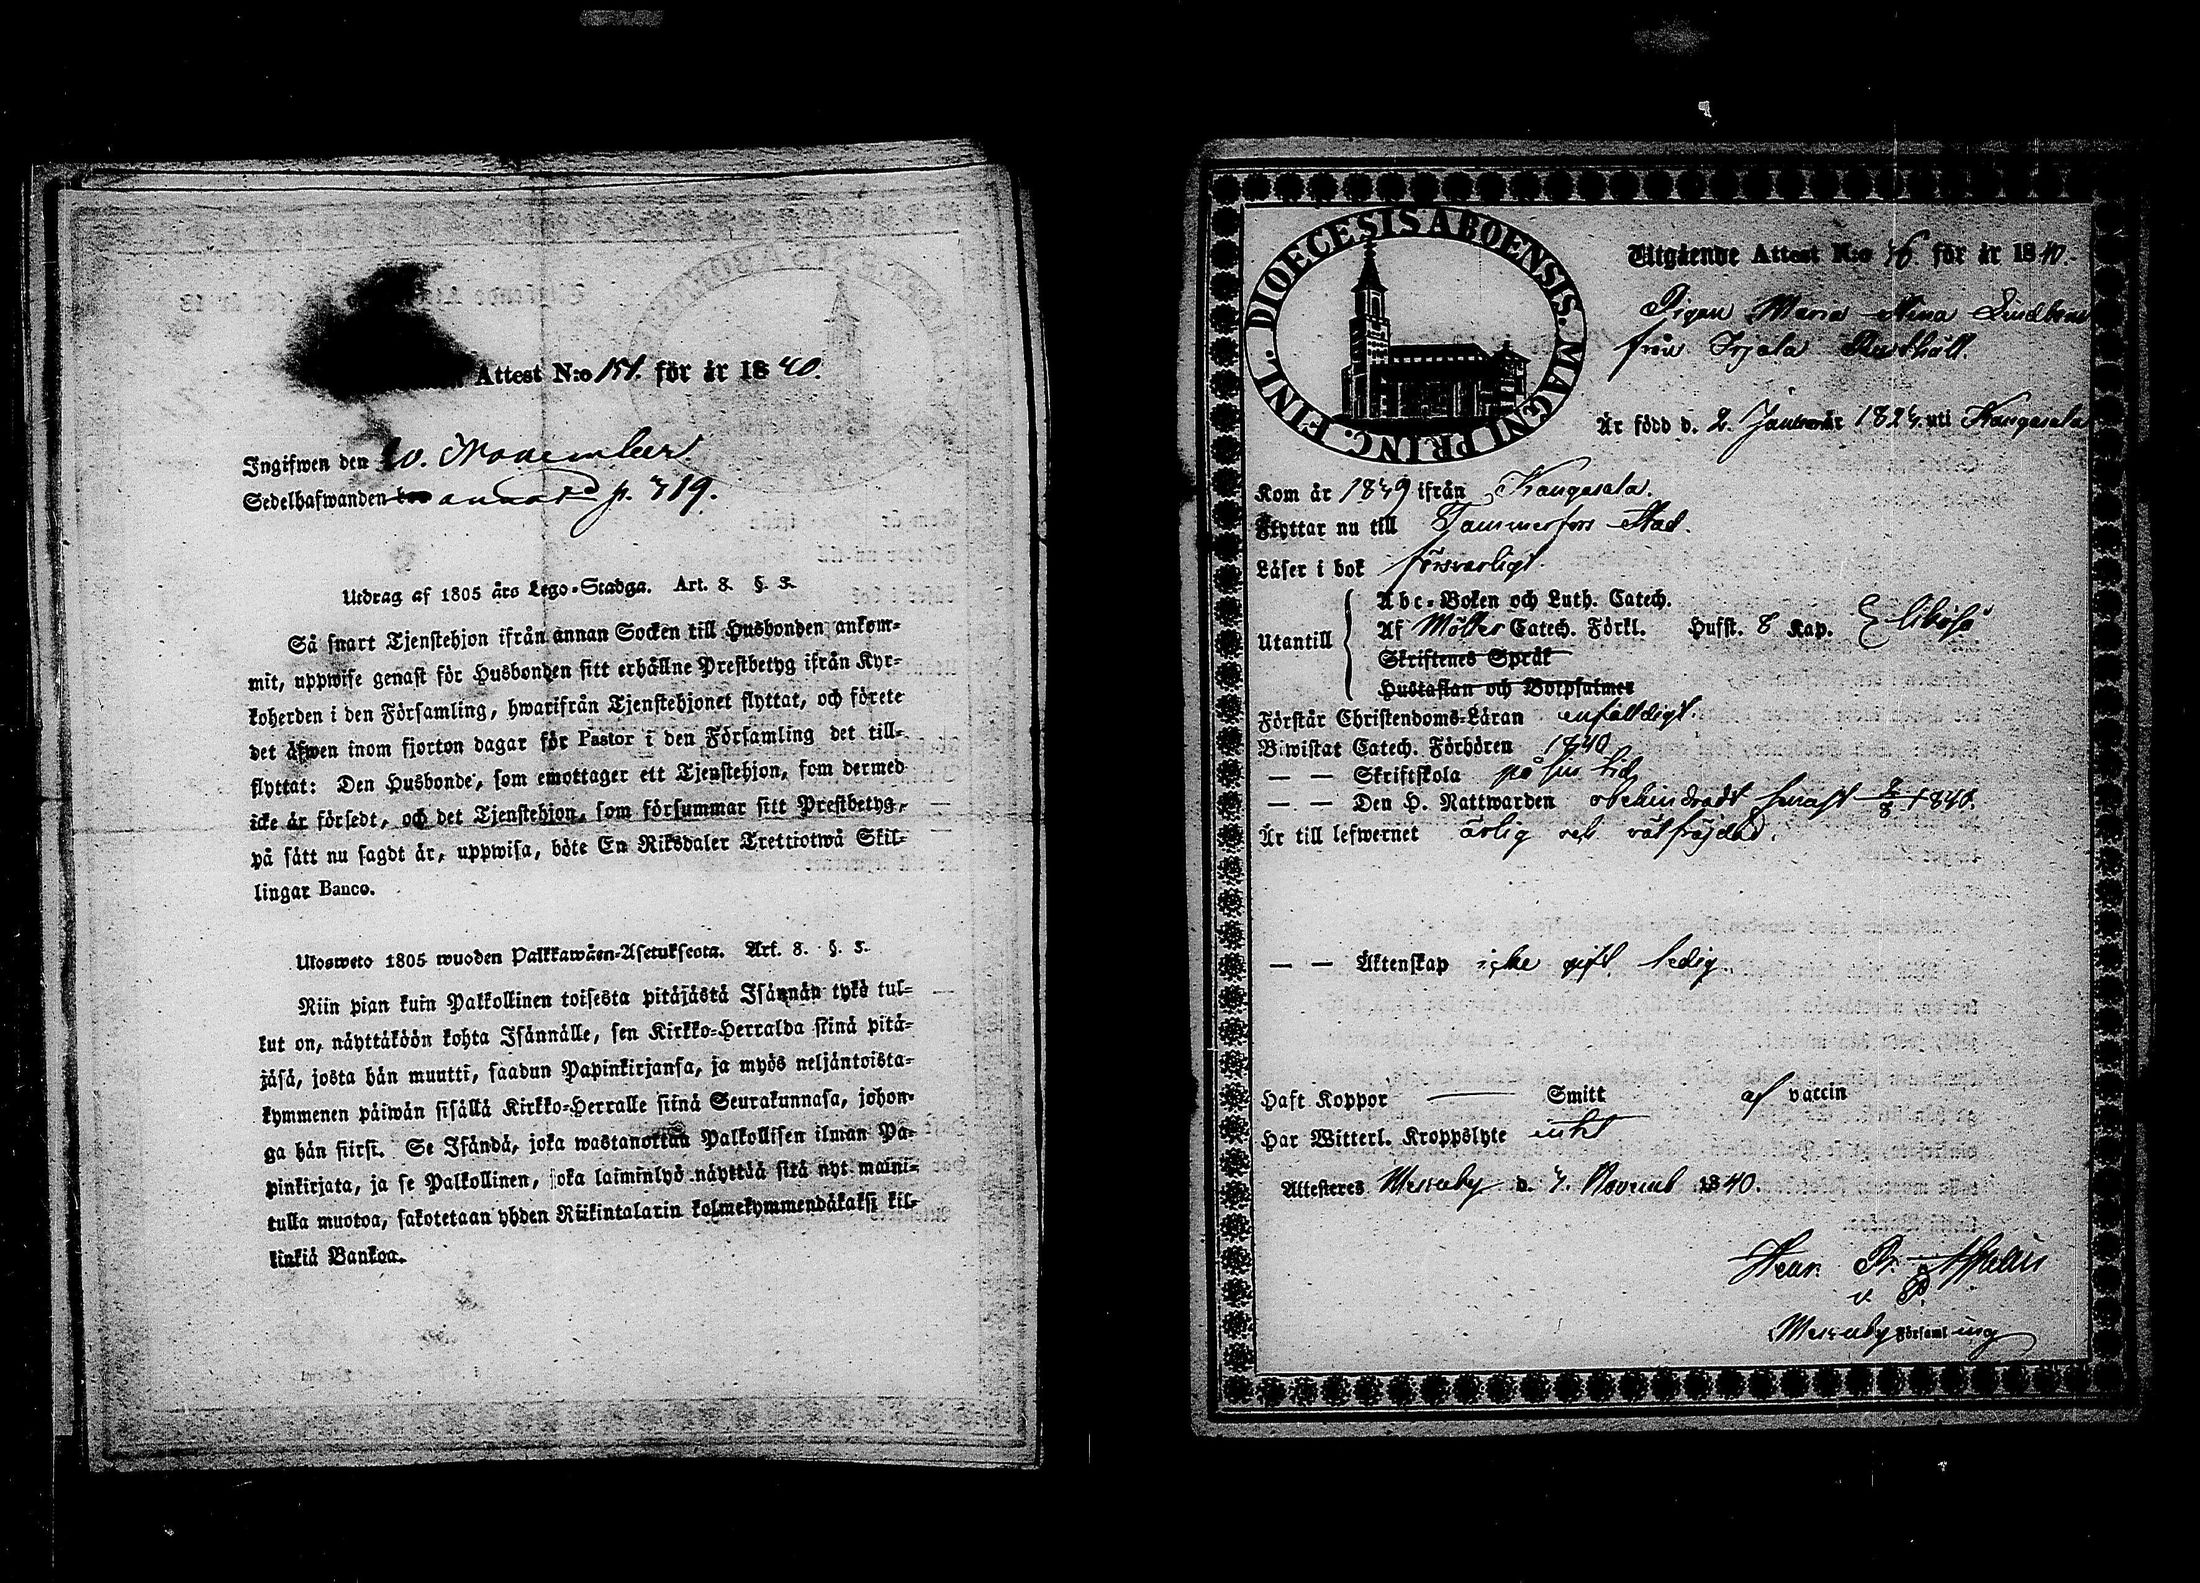 Attest N:o 151. för år 1840.
Ingifwen den 20. November
Sedelhafwanden annot p. 719.
Utdrag af 1805 års Lego-Stadga. Art. 8. §. 3.
Så snart Tjenstehjon ifrån annan Socken till Husbonden ankom-
mit, uppwise genast för Husbonden sitt erhållne Prestbetyg ifrån Kyr-
koherden i den Församling, hwarifrån Tjenstehjonet flyttat, och förete
det äfwen inom fjorton dagar för Pastor i den Församling det till-
flyttat: Den Husbonde, som emottager ett Tjenstehjon, som dermed
icke är försedt, och det Tjenstehjon, som försummar sitt Prestbetyg,
på sätt nu sagdt är, uppwisa, böte En Riksdaler Trettiotwå Skil-
lingar Banco.
Ulosweto 1805 wuoden Palkkawäen-Asetuksesta. Art. 8. §. 3.
Niin pian kuin Palkollinen toisesta pitäjästä Isännän tykö tul-
kut on, näyttäköön kohta Isännälle, sen Kirkko-Herralda siinä pitä-
jäsä, josta hän muutti, saadun Papinkirjansa, ja myös neljäntoista-
kymmenen päiwän sisällä Kirkko-Herralle siinä Seurakunnasa, johon-
ga hän siirsi. Se Isändä, joka wastanottaa Palkollisen ilman Pa-
pinkirjata, ja se Palkollinen, joka laiminlyö näyttää sitä nyt maini-
tulla muotoa, sakotetaan yhden Riikintalarin kolmekymmendäkaksi kil-
linkiä Bankoa.
DIOECESIS ABOENSIS. MAGNI PRINC. FINL.
Utgående Attest N:o 76 för år 1840.
Pigan Maria Stina
från Irjala Rusthåll.
Är född d. 2. Januari år 1824. uti Kangasala
Kom år 1839 ifrån Kangasala.
Flyttar nu till Tammerfors Stad.
Läser i bok försvarligt.
Utantill
Abc-Boken och Luth. Catech.
Af Möller Catech. Förkl. Hufst. 8 Kap.
Skriftenes Språk
Hustaflan och Botpsalmer
Förstår Christendoms-Läran enfaldigt.
Biwistat Catech. Förhören 1840
— — Skriftskola på sin tid
— — Den H. Nattwarden obehindradt senast 2/8 1840.
Är till lefwernet ärlig och välfräjdad.
— — Äktenskap icke gift ledig.
Haft Koppor — Smitt af vaccin
Har Witterl. Kroppslyte intet
Attesteres Messuby d. 7. Novemb 1840.
Messuby Församling